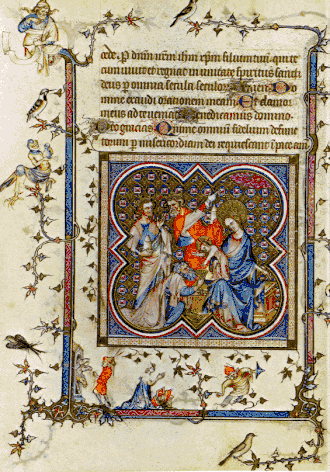 cede. P dnm nrm ihm xpm filium tuum. qui te
cum uiuit et regnat in unitate spiritus sancti
deus p omnia secula seculor. Do
mine exaudi orationem meam Et clamor
meus ad te ueniat Benedicamus domino.
Deo gracias Anime omnium fidelium defunc
torum p misericordiam dei requiescant in pace. am